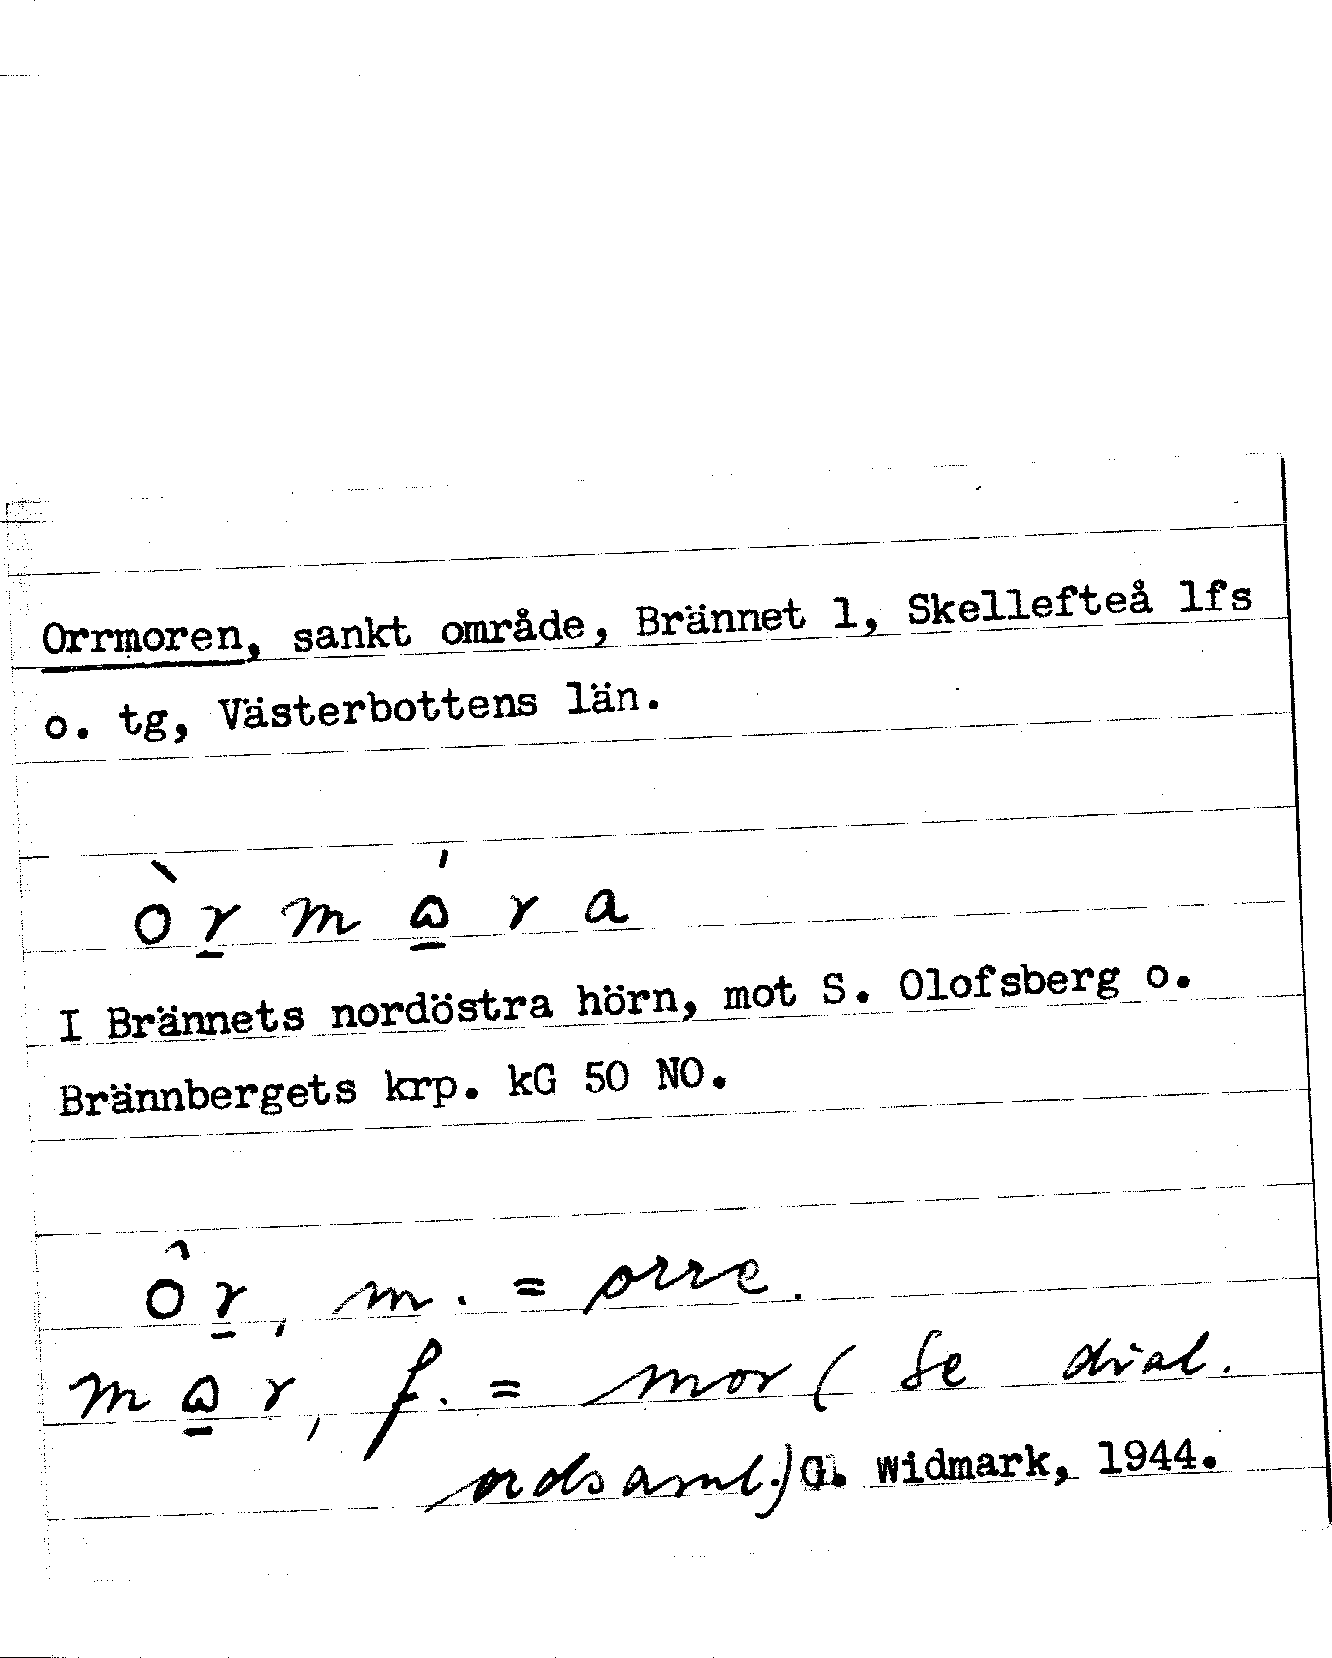 Orrmoren, sankt område, Brännet 1, Skellefteå lfs
o. tg, Västerbottens län.
òr̲mɷ̲́ra
I Brännets nordöstra hörn, mot S. Olofsberg o.
Brännbergets krp. kG 50 NO.
ôr̲, m. = orre.
mɷ̲r, f. = mor ( Se dial.
ordsaml.) G. Widmark, 1944.